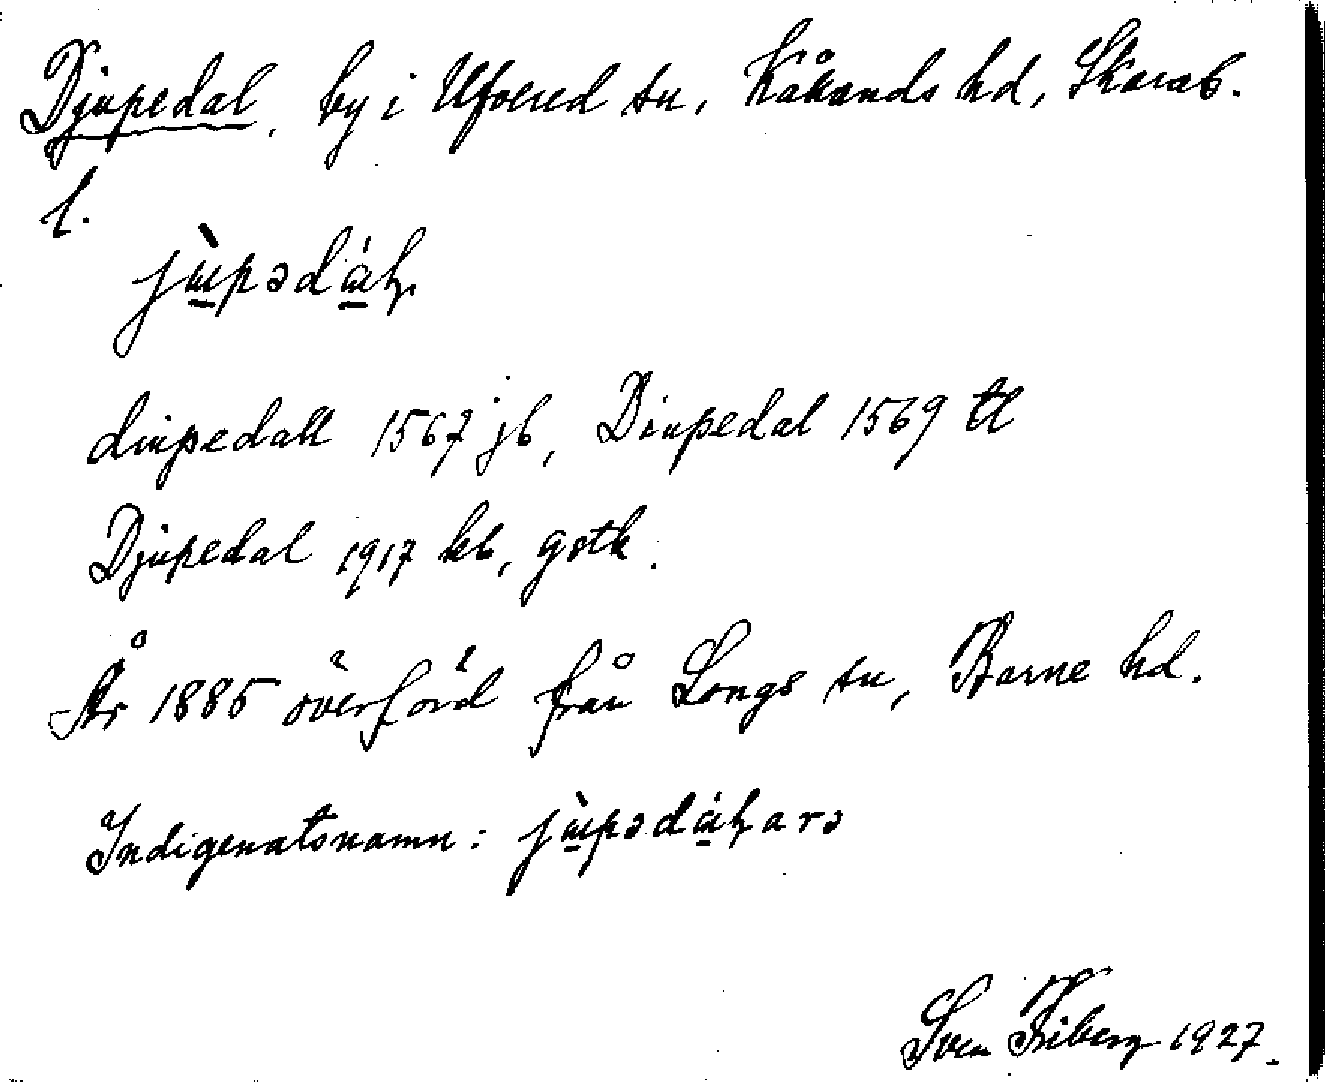 Djupedal, by i Ufvered sn, Kåkands hd, Skarab.
l.
jùpədál
diupedall 1567 jb, Diupedal 1569 tl
Djupedal 1917 kb, gstk.
År 1885 överförd från Längs sn, Barne hd.
Indigenatsnamn: jùpədálarə
Sven Friberg 1927.